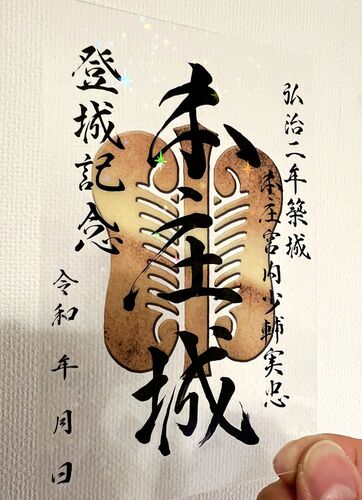 弘治二年築城
本庄宮内少輔実忠
本庄城
登城記念
令和 年 月 日